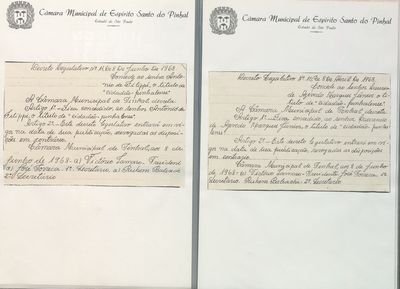 Câmara Municipal de Espírito Santo do Pinhal
Estado de São Paulo
Decreto Legislativo Nº 11, de 8 de Junho de 1968.
Concede ao senhor Anto-
nio de Filippi, o título de
"cidadão-pinhalense"
A Câmara Municipal de Pinhal decreta:
Artigo 1º - Fica concedido ao senhor Antonio de
Filippi, o título de "cidadão-pinhalense"
Artigo 2º - Este decreto legislativo entrará em vi-
gor na data de sua publicação, revogadas as disposi-
ções em contrário.
Câmara Municipal de Pinhal, aos 8 de
junho de 1968 - a) Victório Tamaso - Presidente
a) José Fonseca 1º Secretário a) Rubem
2º Secretário
Câmara Municipal de Espírito Santo do Pinhal
Estado de São Paulo
Decreto Legislativo Nº de 8 de de 1968
Concede ao senhor
de Marques Júnior, o tí-
tulo de "cidadão-pinhalense"
A Câmara Municipal de Pinhal, decreta:
Artigo 1º - Fica concedido, ao senhor
de Marques Júnior, o título de "cidadão-pinha-
lense"
Artigo 2º - Este decreto legislativo entrará em vi-
gor na data de sua publicação, revogadas as disposições
em contrário.
Câmara Municipal de Pinhal, aos 8 de junho
de 1968 - a) Victório Tamaso - Presidente José Fonseca 1º
Secretário. Rubem 2º Secretário